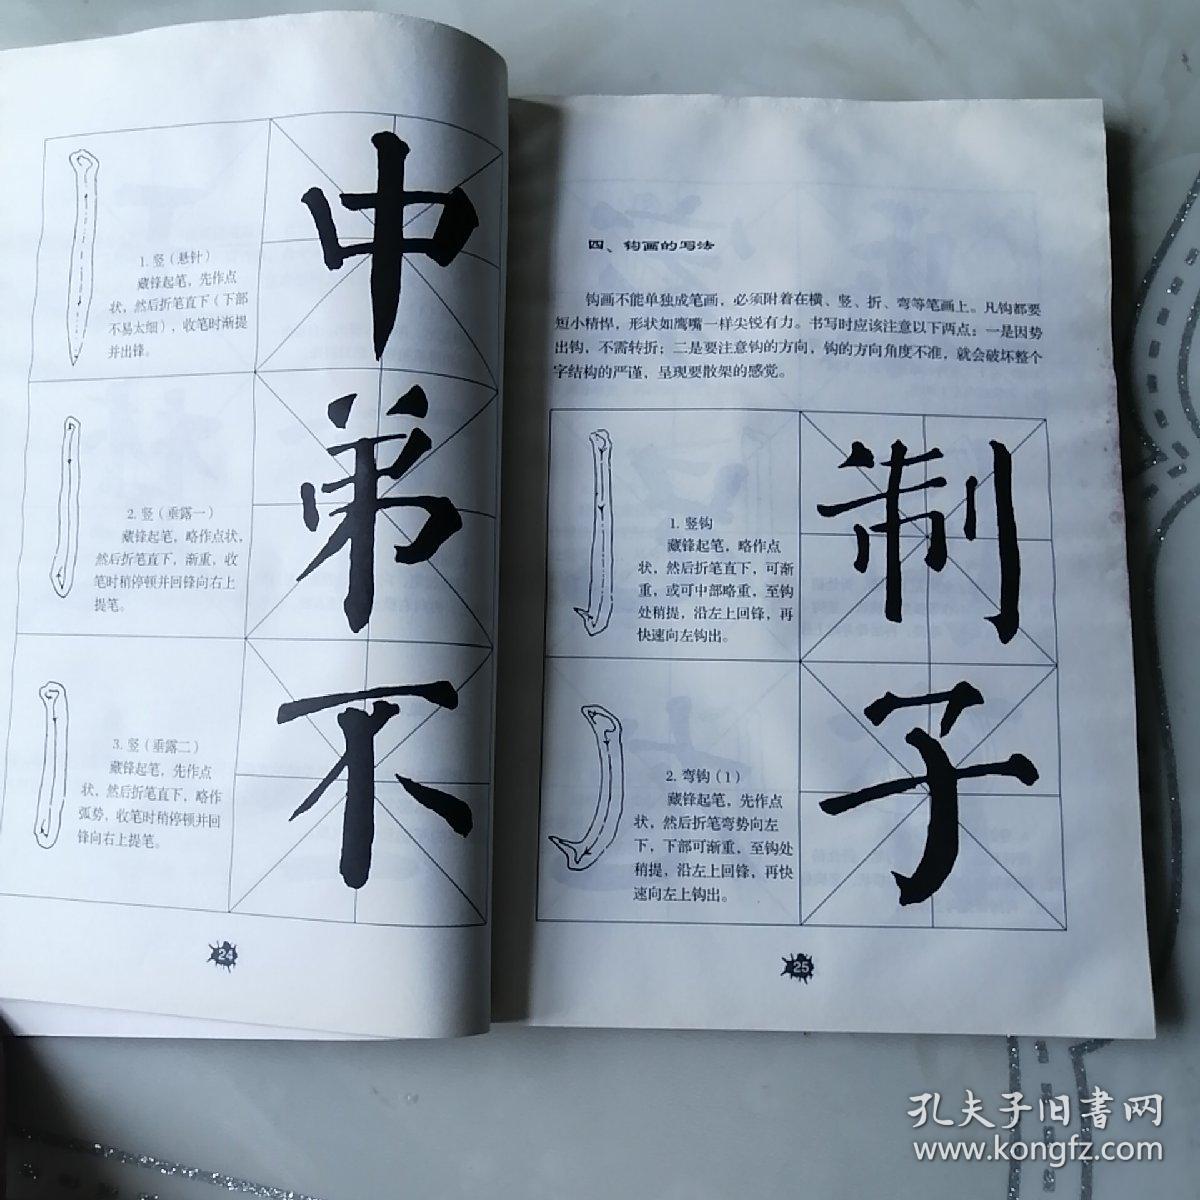 1. 竖（悬针）
藏锋起笔，先作点
状，然后折笔直下（下部
不易太细），收笔时渐提
并出锋。
中
2. 竖（垂露一）
藏锋起笔，略作点状，
然后折笔直下，渐重，收
笔时稍停顿并回锋向右上
提笔。
弟
3. 竖（垂露二）
藏锋起笔，先作点
状，然后折笔直下，略作
弧势，收笔时稍停顿并回
锋向右上提笔。
不
24
四、钩画的写法
钩画不能单独成笔画，必须附着在横、竖、折、弯等笔画上。凡钩都要
短小精悍，形状如鹰嘴一样尖锐有力。书写时应该注意以下两点：一是因势
出钩，不需转折；二是要注意钩的方向，钩的方向角度不准，就会破坏整个
字结构的严谨，呈现要散架的感觉。
1. 竖钩
藏锋起笔，略作点
状，然后折笔直下，可渐
重，或可中部略重，至钩
处稍提，沿左上回锋，再
快速向左钩出。
制
2. 弯钩（1）
藏锋起笔，先作点
状，然后折笔弯势向左
下，下部可渐重，至钩处
稍提，沿左上回锋，再快
速向左上钩出。
子
25
孔夫子旧书网
www.kongfz.com